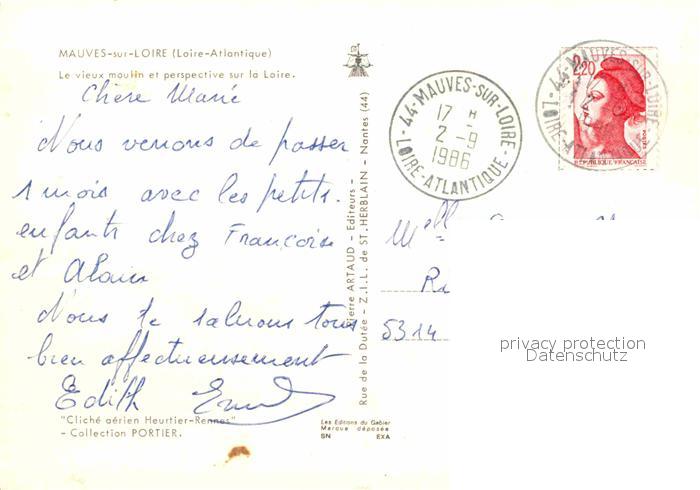 MAUVES-sur-LOIRE (Loire-Atlantique)
Le vieux moulin et perspective sur la Loire.
Chère Marie
Nous venons de passer
1 mois avec les petits.
enfants chez Françoise
et Alain
Nous te saluons tous
bien affectueusement
Edith
"Cliché aérien Heurtier-Rennes"
- Collection PORTIER.
Pierre ARTAUD - Editeurs -
Rue de la Dutée - Z.I.L. de ST. HERBLAIN - Nantes (44)
Les Editions du Gabier
Marque déposée
SN EXA
44-MAUVES-SUR-LOIRE
17 H
2-9
1986
LOIRE-ATLANTIQUE
2,20
REPUBLIQUE FRANÇAISE
44-MAUVES-SUR-LOIRE
LOIRE-ATLANTIQUE
Melle
5314
privacy protection
Datenschutz